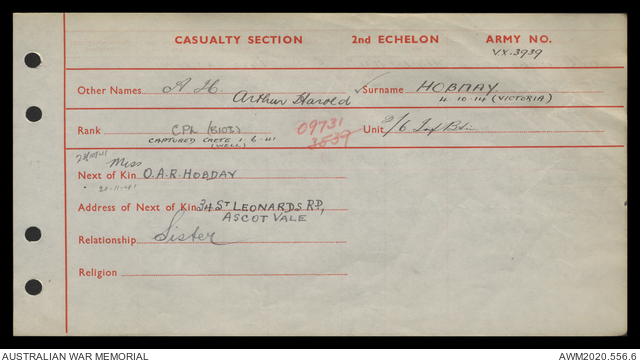 CASUALTY SECTION 2nd ECHELON ARMY NO.
VX.3939
Other Names A H. Surname HOBDAY
Arthur Harold 4.10.14 (VICTORIA)
Rank CPL (B103) 09731 Unit 2/6 Inf Bn
CAPTURED CRETE 1.6.41 3539
(WELL)
Miss
Next of Kin O.A.R. HOBDAY
20-11-41
Address of Next of Kin 34 ST LEONARDS RD,
ASCOT VALE
Relationship Sister
Religion
AUSTRALIAN WAR MEMORIAL AWM2020.556.6